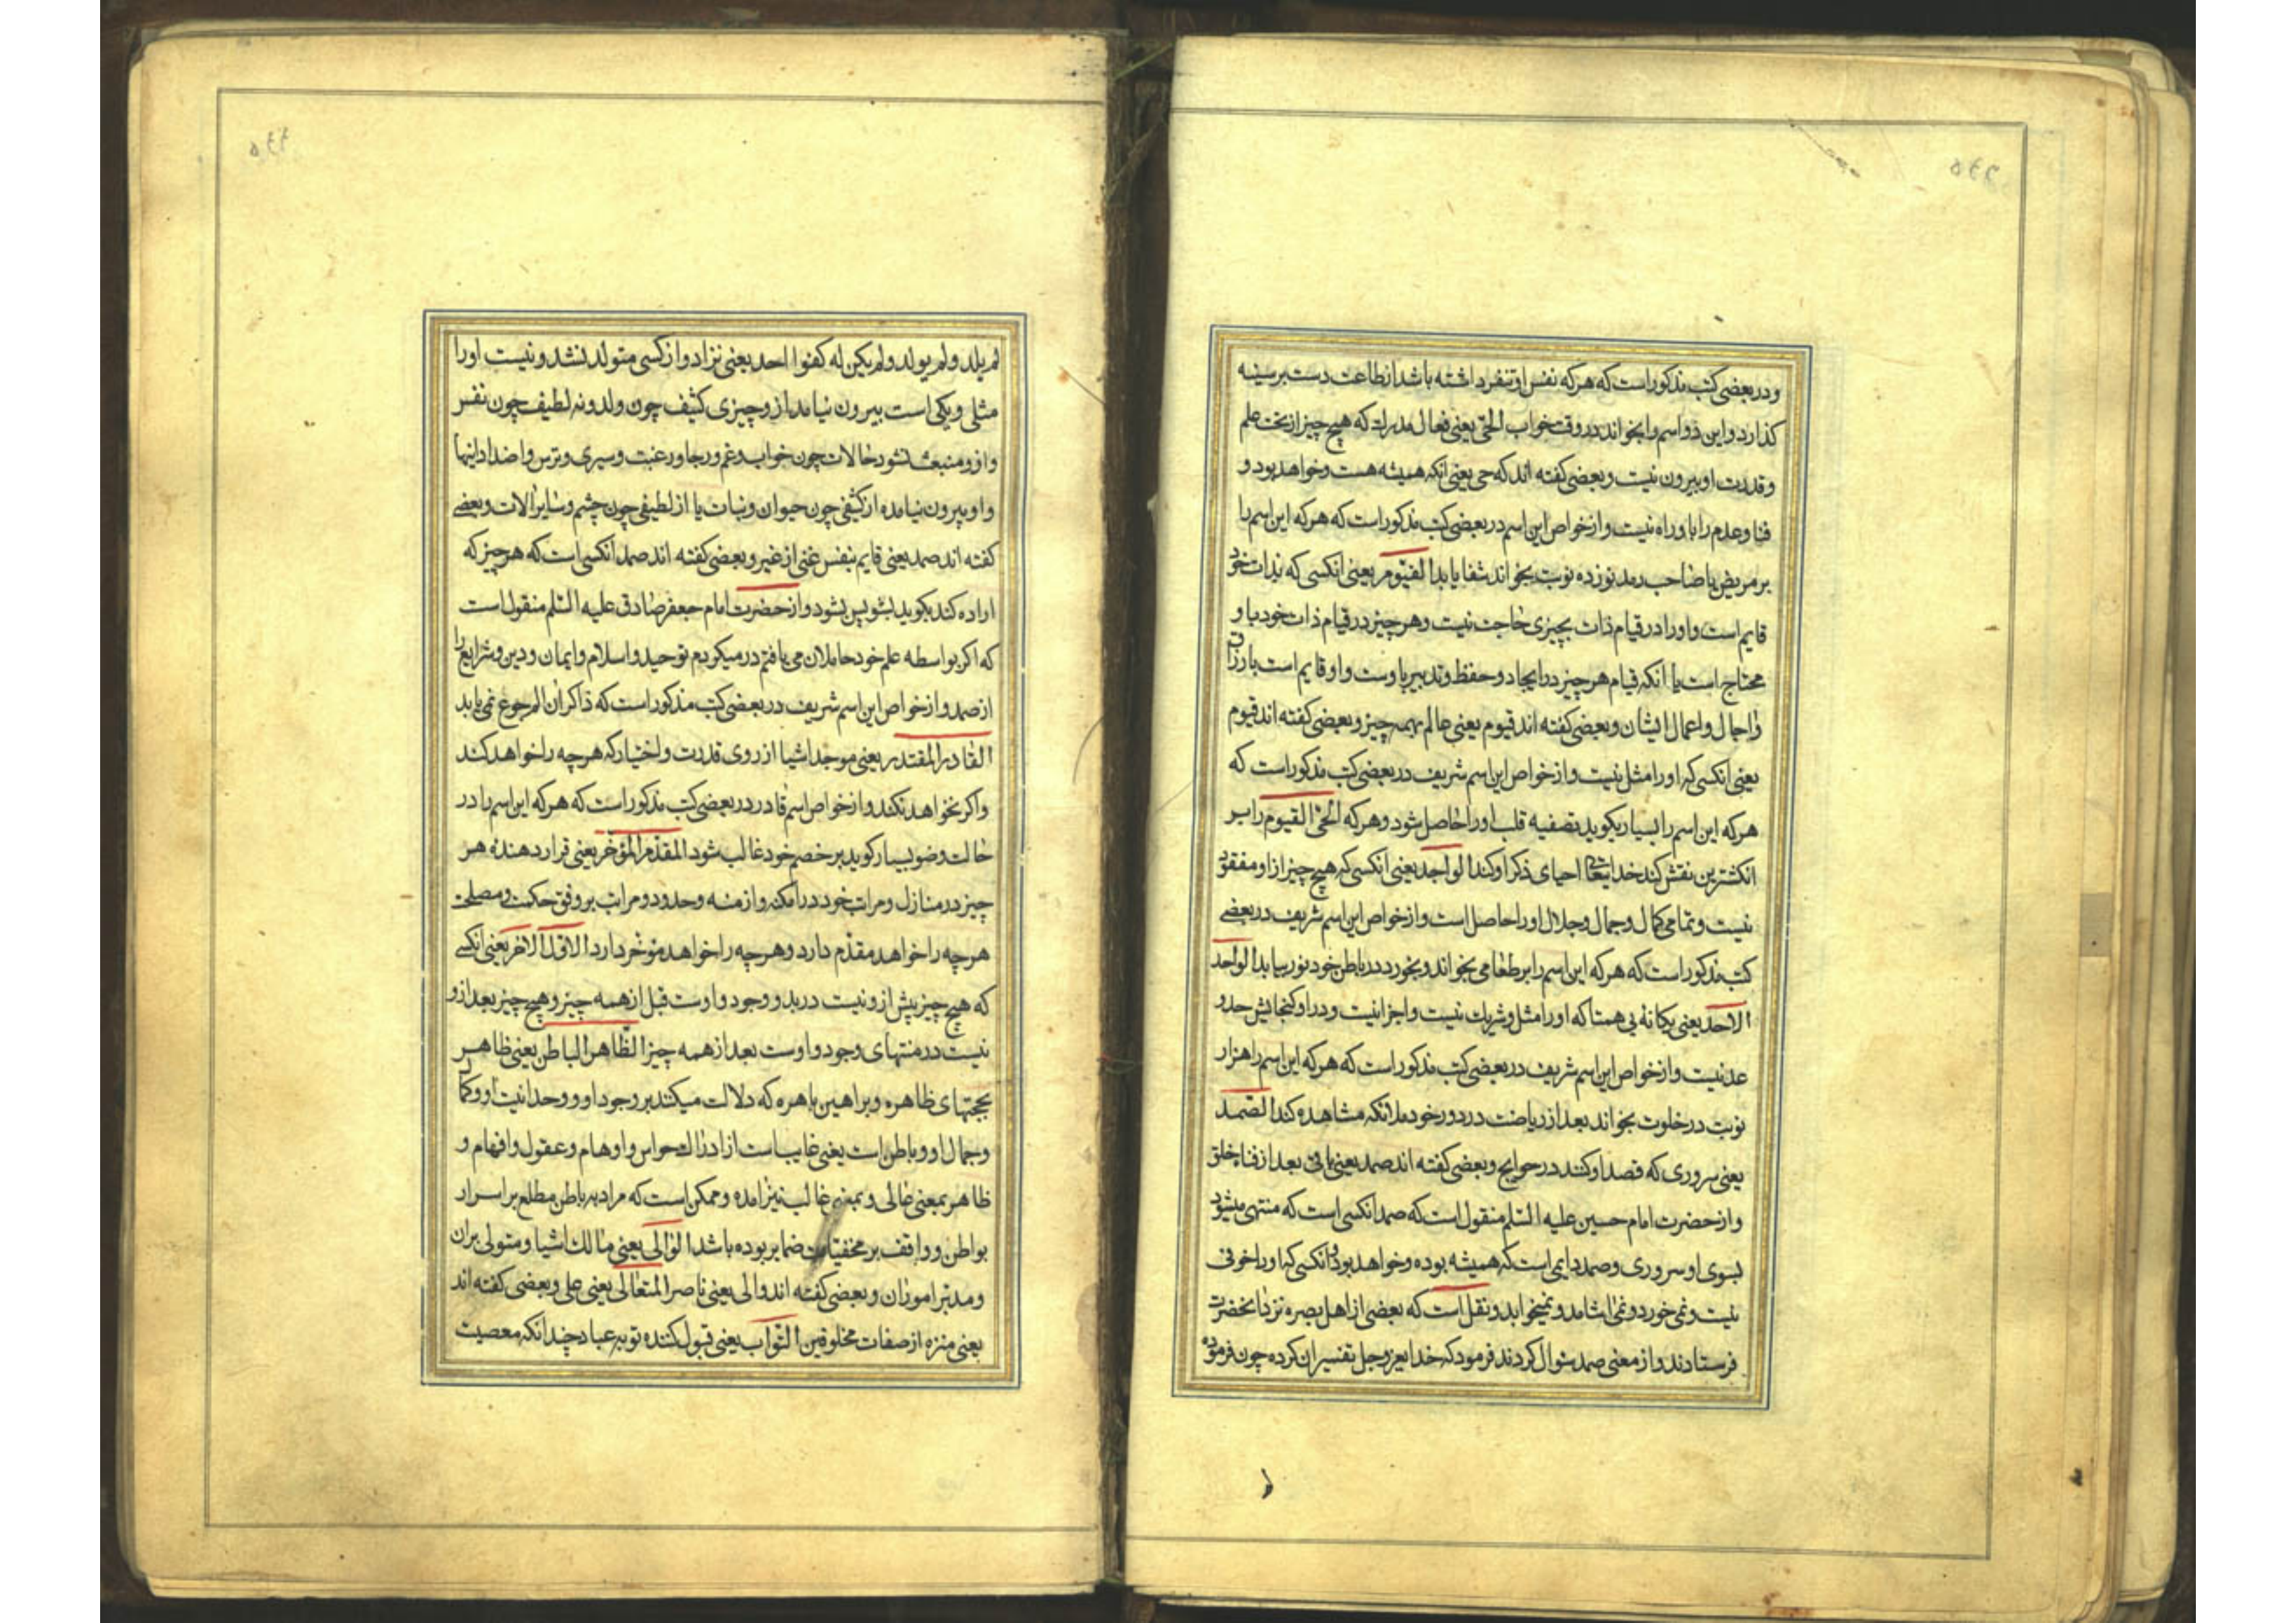 ودر بعضی کتب مذکور است که هرکه نفس او تنفر داشته باشد از طاعت دست بر سینه
کذارد و این دو اسم را بخواند در وقت خواب الحی یعنی فعال مدرك که هیچ چیز از تحت علم
و قدرت او بیرون نیست و بعضی کفته اند که حی یعنی انکه همیشه هست و خواهد بود و
فنا و عدم را باو راه نیست و از خواص این اسم در بعضی کتب مذکور است که هرکه این اسم را
بر مریض یا صاحب رمد نوزده نوبت بخواند شفا یابد القیوم یعنی انکسی که بذات خود
قایم است و او را در قیام ذات بچیزی حاجت نیست و هر چیز در قیام ذات خود باو
محتاج است یا انکه قیام هر چیز در ایجاد و حفظ و تدبیر باوست و او قایم است بارزاق
و اجال و اعمال ایشان و بعضی کفته اند قیوم یعنی عالم بهمه چیز و بعضی کفته اند قیوم
یعنی انکسی که او را مثل نیست و از خواص این اسم شریف در بعضی کتب مذکور است که
هرکه این اسم را بسیار بکوید تصفیه قلب او را حاصل شود و هرکه الحی القیوم را بر
انکشترین نقش کند خدایتعا احیای ذکر او کند الواجد یعنی انکسی که هیچ چیز از او مفقود
نیست و تمامی کمال و جمال و جلال او را حاصل است و از خواص این اسم شریف در بعضی
کتب مذکور است که هرکه این اسم را بر طعامی بخواند و بخورد در باطن خود نور بیابد الواحد
الاحد یعنی یکانه بی همتا که او را مثل و شریك نیست و اجزا نیست و در او کنجایش حد و
عد نیست و از خواص این اسم شریف در بعضی کتب مذکور است که هرکه این اسم را هزار
نوبت در خلوت بخواند بعد از ریاضت در دور خود ملائکه مشاهده کند الصمد
یعنی سروری که قصد او کنند در حوایج و بعضی کفته اند صمد یعنی باقی بعد از فناء خلق
و از حضرت امام حسین علیه السّلم منقول است که صمد انکسی است که منتهی میشود
بسوی او سروری و صمد دایمی است که همیشه بوده و خواهد بود و انکسی که او را خوفی
نیست و نمی خورد و نمی اشامد و نمیخوابد و نقل است که بعضی از اهل بصره نزد انحضرت
فرستادند و از معنی صمد سٶال کردند فرمود که خدای عزوجل تفسیر ان کرده چون فرموده
لم یلد ولم یولد ولم یکن له کفوا احد یعنی نزاد و از کسی متولد نشد و نیست او را
مثلی و یکی است بیرون نیامد از و چیزی کثیف چون ولد و نه لطیف چون نفس
و از و منبعث نشود حالات چون خواب و غم و رجا و رغبت و سیری و ترس و اضداد اینها
و او بیرون نیامده از کثیفی چون حیوان و نبات یا از لطیفی چون چشم و سایر الات و بعضی
کفته اند صمد یعنی قایم بنفس غنی از غیر و بعضی کفته اند صمد انکسی است که هر چیز که
اراده کند بکوید بشو پس بشود و از حضرت امام جعفر صادق علیه السّلم منقول است
که اکر بواسطه علم خود حاملان می یافتم در میکردم توحید و اسلام و ایمان و دین و شرایع را
از صمد و از خواص این اسم شریف در بعضی کتب مذکور است که ذاکر ان الم جوع نمی یابد
القادر المقتدر یعنی موجد اشیا از روی قدرت و اختیار که هر چه را خواهد کند
و اکر نخواهد نکند و از خواص اسم قادر در بعضی کتب مذکور است که هرکه این اسم را در
حالت وضو بسیار کوید بر خصم خود غالب شود المقدم المؤخر یعنی قرار دهنده هر
چیز در منازل و مراتب خود در امکنه و ازمنه و حدود و مراتب بر وفق حکمت و مصلحت
هر چه را خواهد مقدّم دارد و هر چه را خواهد مؤخر دارد الاوّل الاخر یعنی انکسی
که هیچ چیز پیش از و نیست در بدو وجود و اوست قبل از همه چیز و هیچ چیز بعد از و
نیست در منتهای وجود و اوست بعد از همه چیز الظّاهر الباطن یعنی ظاهر
بحجتهای ظاهره و براهین باهره که دلالت میکنند بر وجود او و وحدانیت او و کمال
و جمال او و باطن است یعنی غایب است از ادراك حواس و اوهام و عقول و افهام و
ظاهر بمعنی عالی و بمعنی غالب نیز امده و ممکن است که مراد به باطن مطلع بر اسرار
بواطن و واقف بر مخفیات ضمایر بوده باشد الوالی یعنی مالك اشیا و متولی بران
و مدبّر امور ان و بعضی کفته اند والی یعنی ناصر المتعالی یعنی علی و بعضی کفته اند
یعنی منزه از صفات مخلوقین التّواب یعنی قبول کننده توبه عباد چندانکه معصیت